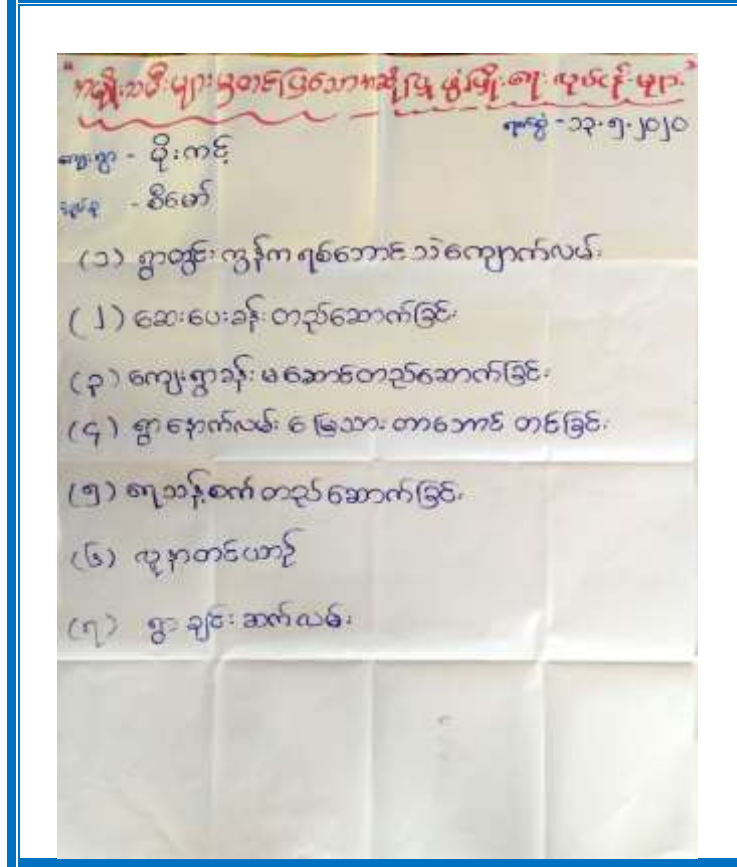 "အမျိုးသမီးများမှတင်ပြသောအဆိုပြု ဖွံ့ဖြိုးရေး လုပ်ငန်းများ"
ရက်စွဲ - ၁၃.၅.၂၀၂၀
ကျေးရွာ - ပိုးကင်
အုပ်စု - စီမော်
(၁) ရွာတွင်း ကွန်ကရစ်အောင် သဲကျောက်လမ်း
(၂) ဆေးပေးခန်း တည်ဆောက်ခြင်း
(၃) ကျေးရွာခန်းမဆောင်တည်ဆောက်ခြင်း
(၄) ရွာနောက်လမ်း မြေသားတာဘောင် တင်ခြင်း
(၅) ရေသန့်စက် တည်ဆောက်ခြင်း
(၆) လူနာတင်ယာဉ်
(၇) ရွာချင်းဆက်လမ်း